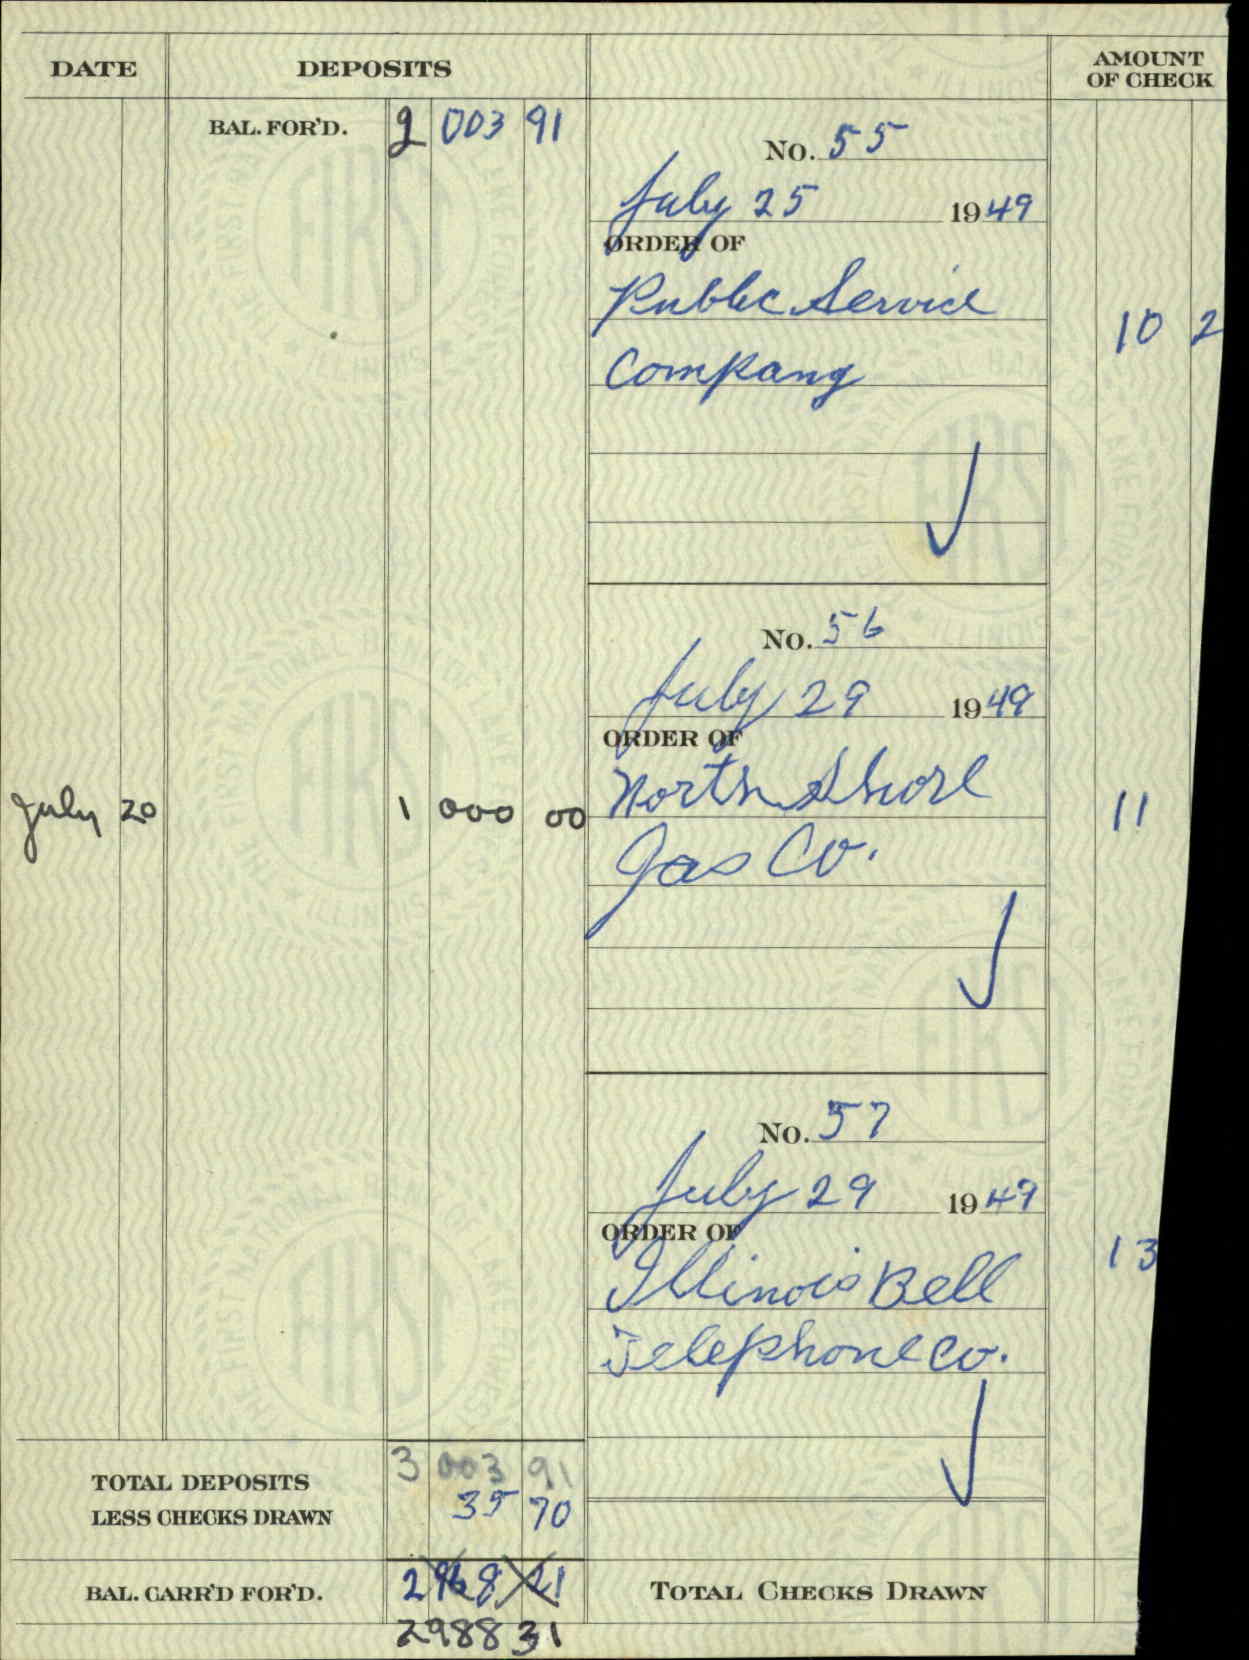 DATE DEPOSITS AMOUNT OF CHECK
BAL. FOR'D. 2 003 91
No. 55
July 25 1949
ORDER OF
Public Service 10 2
Company
No. 56
July 29 1949
ORDER OF
July 20 1 000 00 North Shore 11
Gas Co.
No. 57
July 29 1949
ORDER OF
Illinois Bell 13
Telephone Co.
TOTAL DEPOSITS 3 003 91
LESS CHECKS DRAWN 35 70
BAL. CARR'D FOR'D. 2 968 21 TOTAL CHECKS DRAWN
2988 31